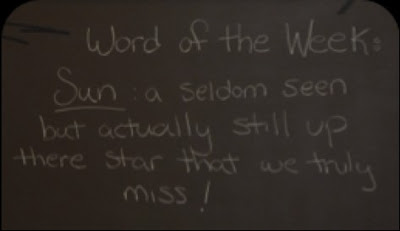 Word of the Week:
Sun : a seldom seen
but actually still up
there star that we truly
miss!